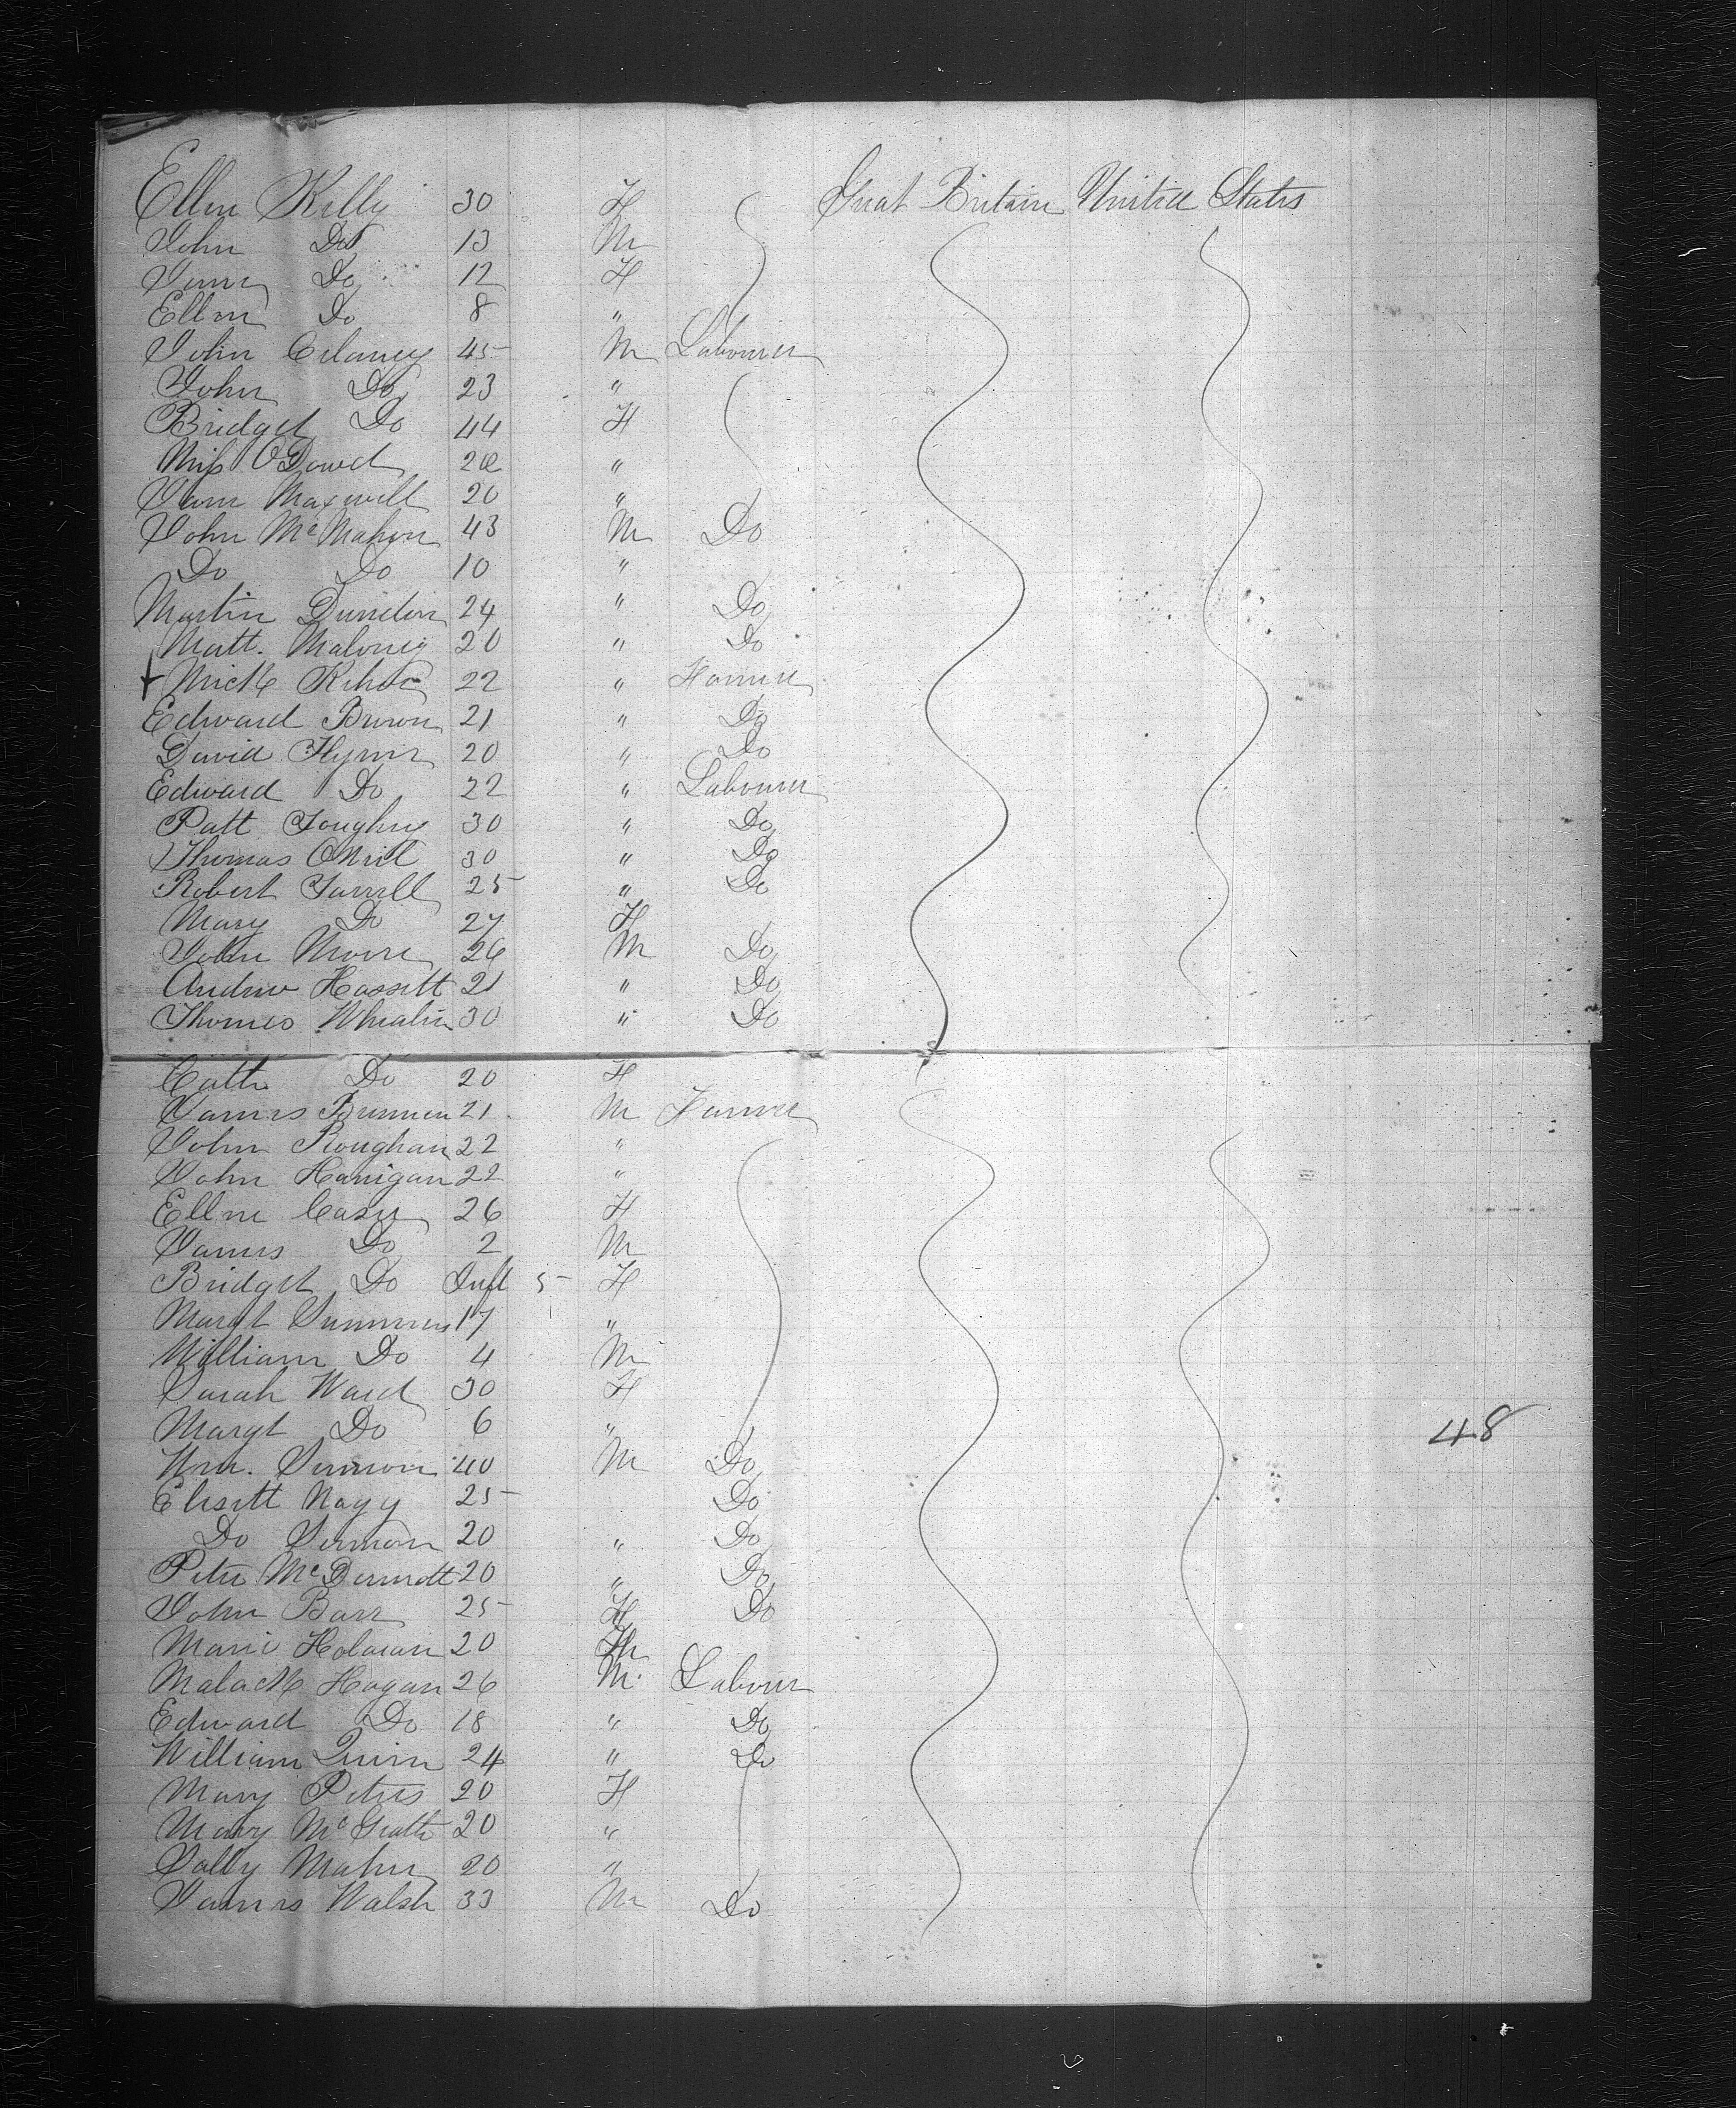 Ellen Kelly 30 F Great Britain United States
John Do 13 M
Jane Do 12 F
Ellen Do 8 "
John Clancy 45 M Labourer
John Do 23 "
Bridget Do 44 F
Miss O'Dowd 20 "
Jane Maxwell 20 "
John McMahon 43 M Do
Do Do 10 "
Martin 24 " Do
Matt. Maloney 20 " Do
Mick 22 " Farmer
Edward Brown 21 " Do
David Flynn 20 " Do
Edward Do 22 " Labourer
Patt 30 " Do
Thomas O'Neil 30 " Do
Robert Farrell 25 " Do
Mary Do 27 F
John Moore 26 M Do
Andrew Hassett 21 " Do
Thomas Whealin 30 " Do
Cath Do 20 F
James Brennen 21 M Farmer
John Roughan 22 "
John Hanigan 22 "
Ellen Casey 26 F
James Do 2 M
Bridget Do Inft 5 F
Margt Summers 17 "
William Do 4 M
Sarah Ward 30 F
Margt Do 6 "
Wm. 40 M Do
Nagy 25 Do
Do 20 " Do
Peter McDermott 20 " Do
John Barr 25 F Do
Marie 20
Malack Hogan 26 M Labourer
Edward Do 18 " Do
William Quinn 24 " Do
Mary Peters 20 F
Mary McGrath 20 "
Sally Maher 20 "
James Walsh 33 M Do
48